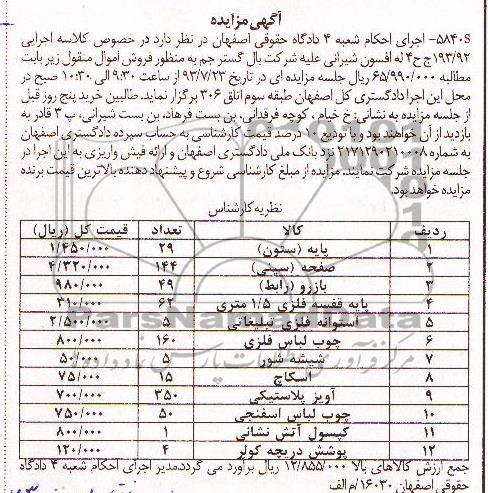 آگهی مزایده
۵۸۴۰۵- اجرای احکام شعبه ۴ دادگاه حقوقی اصفهان در نظر دارد در خصوص کلاسه اجرایی
۱۹۳/۹۲ج ح۴ له افسون شیرانی علیه شرکت بال گستر جم به منظور فروش اموال منقول زیر بابت
مطالبه ۶۵/۹۹۰/۰۰۰ ریال جلسه مزایده ای در تاریخ ۹۳/۷/۲۳ از ساعت ۹:۳۰ الی ۱۰:۳۰ صبح در
محل این اجرا دادگستری کل اصفهان طبقه سوم اتاق ۳۰۶ برگزار نماید. طالبین خرید پنج روز قبل
از جلسه مزایده به نشانی: خ خیام ، کوچه فرقدانی، بن بست فرهاد، بن بست شیرانی، پ ۳ قادر به
بازدید از آن خواهند بود و با تودیع ۱۰ درصد قیمت کارشناسی به حساب سپرده دادگستری اصفهان
به شماره ۲۱۷۱۲۹۰۲۱۰۰۰۸ نزد بانک ملی دادگستری اصفهان و ارائه فیش واریزی به این اجرا در
جلسه مزایده شرکت نمایند. مزایده از مبلغ کارشناسی شروع و پیشنهاد دهنده بالاترین قیمت برنده
مزایده خواهد بود.
نظریه کارشناس
ردیف کالا تعداد قیمت کل (ریال)
۱ پایه (ستون) ۲۹ ۱/۴۵۰/۰۰۰
۲ صفحه (سینی) ۱۴۴ ۴/۳۲۰/۰۰۰
۳ بازرو (رابط) ۴۹ ۹۸۰/۰۰۰
۴ پایه قفسه فلزی ۱/۵ متری ۶۲ ۳۱۰/۰۰۰
۵ استوانه فلزی تبلیغاتی ۵ ۲/۵۰۰/۰۰۰
۶ چوب لباس فلزی ۱۶۰ ۸۰۰/۰۰۰
۷ شیشه شور ۵ ۵۰/۰۰۰
۸ اسکاچ ۱۵ ۷۵/۰۰۰
۹ آویز پلاستیکی ۳۵۰ ۷۰۰/۰۰۰
۱۰ چوب لباس اسفنجی ۵۰ ۷۵۰/۰۰۰
۱۱ کپسول آتش نشانی ۱ ۸۰۰/۰۰۰
۱۲ پوشش دریچه کولر ۴ ۱۲۰/۰۰۰
جمع ارزش کالاهای بالا ۱۲/۸۵۵/۰۰۰ ریال برآورد می گردد.مدیر اجرای احکام شعبه ۴ دادگاه
حقوقی اصفهان ۱۶۰۳۰/م الف
ParsNamadData
مرکز فرآوری اطلاعات پارس نماد داده ها